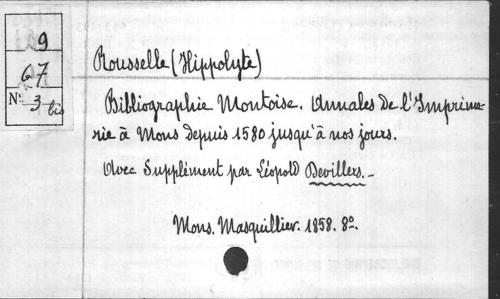 9
67
N° 3 bis
Rousselle (Hippolyte)
Bibliographie Montoise. Annales de l'Imprime-
rie à Mons depuis 1580 jusqu'à nos jours.
Avec Supplément par Léopold Devillers. -
Mons. Masquillier. 1858. 8°.